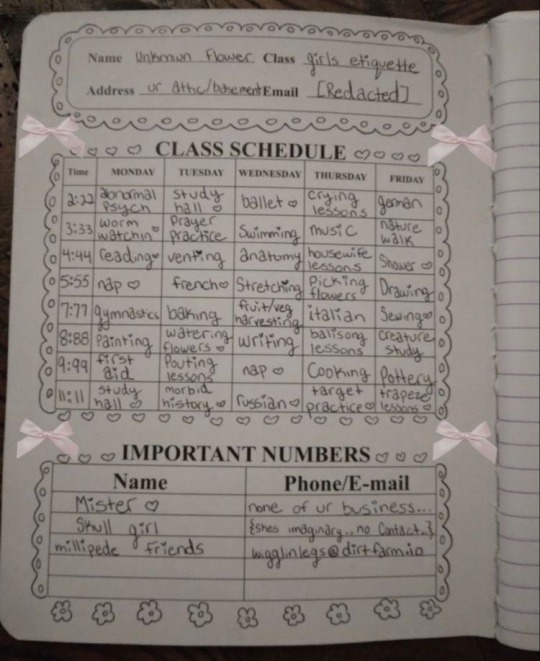 Name Unknown flower Class girls etiquette
Address ur attic/basement Email [Redacted]
CLASS SCHEDULE
Time MONDAY TUESDAY WEDNESDAY THURSDAY FRIDAY
2:22 abnormal psych study hall ballet crying lessons german
3:33 worm watchin prayer practice Swimming music nature walk
4:44 reading venting anatomy housewife lessons Shower
5:55 nap french Stretching Picking flowers Drawing
7:77 gymnastics baking fruit/veg harvesting italian Sewing
8:88 Painting watering flowers writing balisong lessons Creature study
9:99 first aid Pouting lessons nap Cooking Pottery
11:11 study hall morbid history russian target practice trapeze lessons
IMPORTANT NUMBERS
Name Phone/E-mail
Mister none of ur business...
Skull girl {shes imaginary.. no contact..}
millipede friends wigglinlegs@dirtfarm.io